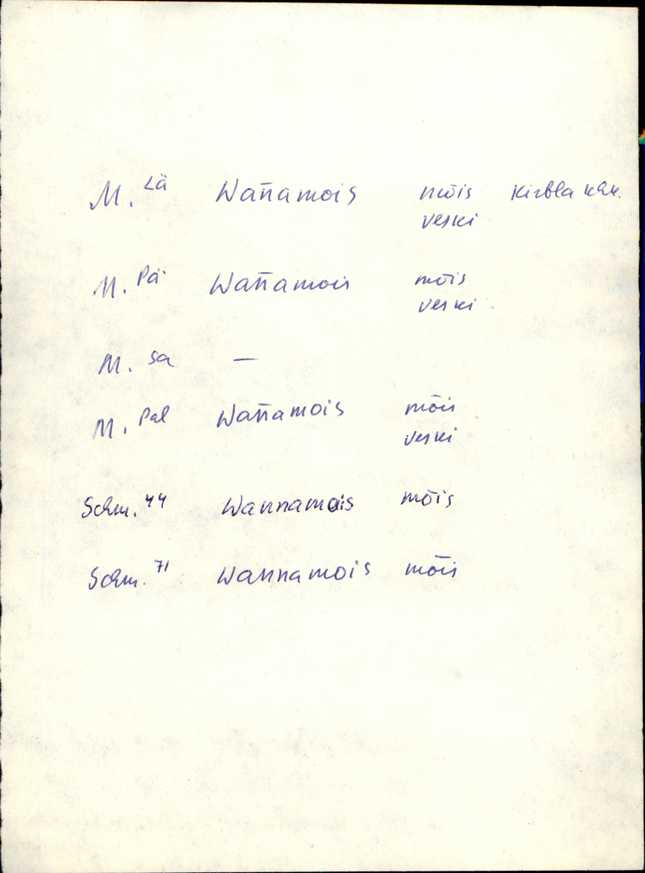 M. Lä Wan̄amois mõis Kirbla khk.
veski
M. Pä. Wan̄amois mõis
veski
M. Sa —
M. Pal Wan̄amois mõis
veski
Schm. 44 Wannamois mõis
Schm. 71 Wannamois mõis